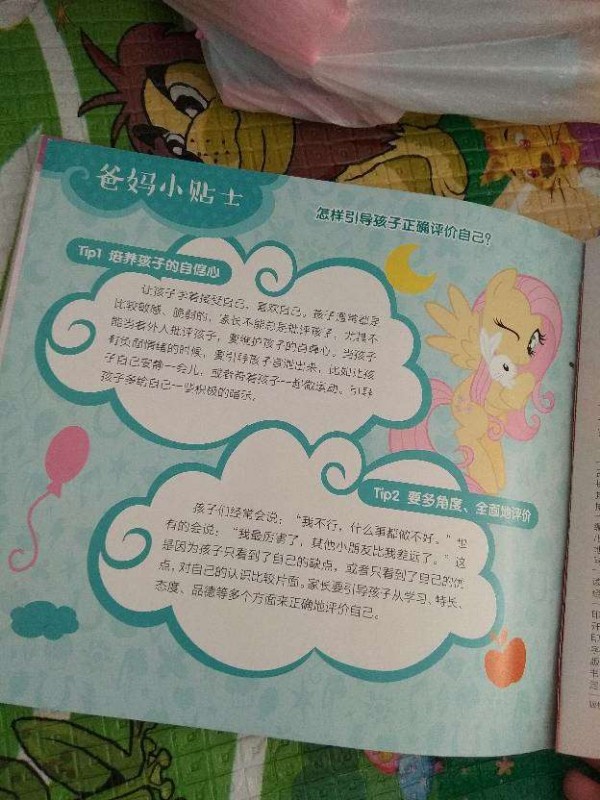 爸妈小贴士
怎样引导孩子正确评价自己?
Tip1 培养孩子的自信心
让孩子学着接受自己，喜欢自己。孩子通常都是
比较敏感、脆弱的，家长不能总是批评孩子，尤其不
能当着外人批评孩子，要维护孩子的自尊心。当孩子
有负面情绪的时候，要引导孩子宣泄出来，比如让孩
子自己安静一会儿，或者带着孩子一起做运动、引导
孩子多给自己一些积极的暗示。
Tip2 要多角度、全面地评价
孩子们经常会说：“我不行，什么事都做不好。”也
有的会说：“我最厉害了，其他小朋友比我差远了。”这
是因为孩子只看到了自己的缺点，或者只看到了自己的优
点，对自己的认识比较片面。家长要引导孩子从学习、特长、
态度、品德等多个方面来正确地评价自己。